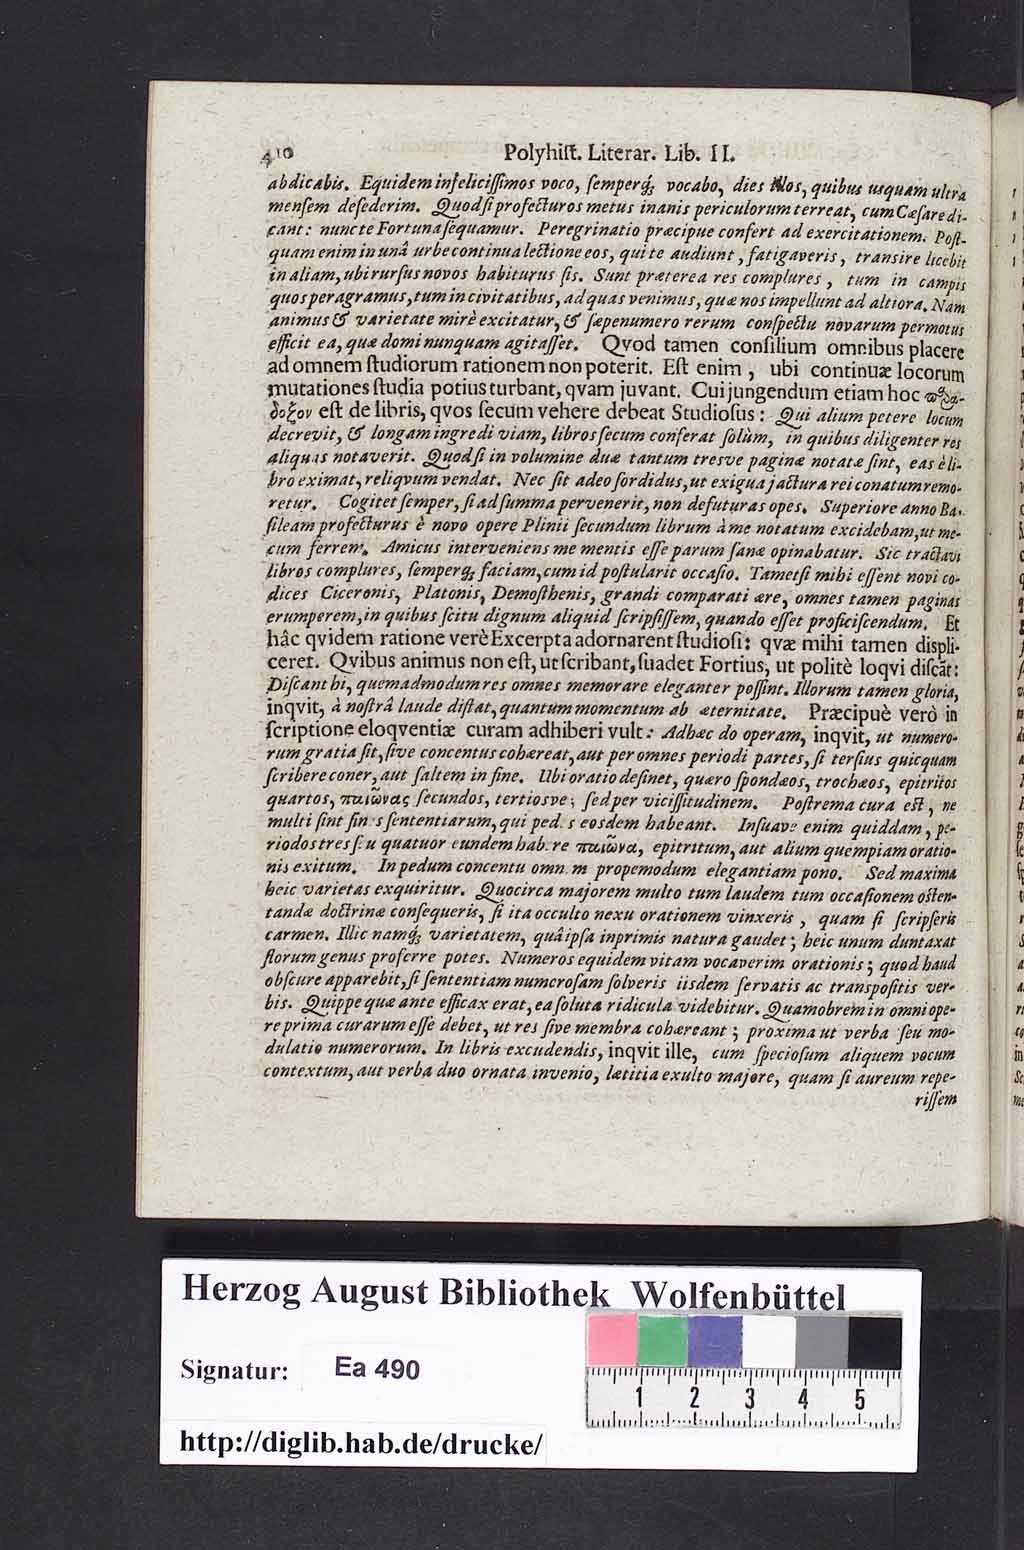 410 Polyhiſt. Literar. Lib. II.
abdicabis. Equidem infeliciſſimos voco, ſemperq́; vocabo, dies illos, quibus uſquam ultra
menſem deſederim. Quod ſi profecturos metus inanis periculorum terreat, cum Cæſare di-
cant: nunc te Fortuna ſequamur. Peregrinatio præcipue confert ad exercitationem. Poſt-
quam enim in unâ urbe continua lectione eos, qui te audiunt, fatigaveris, tranſire licebit
in aliam, ubi rurſus novos habiturus ſis. Sunt præterea res complures, tum in campis
quos peragramus, tum in civitatibus, ad quas venimus, quæ nos impellunt ad altiora. Nam
animus & varietate mirè excitatur, & ſæpenumero rerum conſpectu novarum permotus
efficit ea, quæ domi nunquam agitaſſet. Qvod tamen conſilium omnibus placere
ad omnem ſtudiorum rationem non poterit. Eſt enim, ubi continuæ locorum
mutationes ſtudia potius turbant, qvam juvant. Cui jungendum etiam hoc παρα-
δοξον eſt de libris, qvos ſecum vehere debeat Studioſus: Qui alium petere locum
decrevit, & longam ingredi viam, libros ſecum conferat ſolùm, in quibus diligenter res
aliquas notaverit. Quodſi in volumine duæ tantum tresve paginæ notatæ ſint, eas è li-
bro eximat, reliqvum vendat. Nec ſit adeo ſordidus, ut exigua jactura rei conatum remo-
retur. Cogitet ſemper, ſi ad ſumma pervenerit, non defuturas opes. Superiore anno Ba-
ſileam profecturus è novo opere Plinii ſecundum librum à me notatum excidebam, ut me-
cum ferrem. Amicus interveniens me mentis eſſe parum ſanæ opinabatur. Sic tractavi
libros complures, ſemperq; faciam, cum id poſtularit occaſio. Tametſi mihi eſſent novi co-
dices Ciceronis, Platonis, Demoſthenis, grandi comparati ære, omnes tamen paginas
erumperem, in quibus ſcitu dignum aliquid ſcripſiſſem, quando eſſet proficiſcendum. Et
hâc qvidem ratione verè Excerpta adornarent ſtudioſi: qvæ mihi tamen displi-
ceret. Qvibus animus non eſt, ut ſcribant, ſuadet Fortius, ut politè loqvi diſcāt:
Diſcant hi, quemadmodum res omnes memorare eleganter poſſint. Illorum tamen gloria,
inqvit, à noſtrâ laude diſtat, quantum momentum ab æternitate. Præcipuè verò in
ſcriptione eloqventiæ curam adhiberi vult: Ad hæc do operam, inqvit, ut numero-
rum gratia ſit, ſive concentus cohæreat, aut per omnes periodi partes, ſi terſius quicquam
ſcribere coner, aut ſaltem in fine. Ubi oratio deſinet, quæro ſpondæos, trochæos, epitritos
quartos, παιῶνας ſecundos, tertiosve; ſed per viciſſitudinem. Poſtrema cura eſt, ne
multi ſint fin s ſententiarum, qui ped s eosdem habeant. Inſuave enim quiddam, pe-
riodos tres ſeu quatuor eundem hab re παιῶνα, epitritum, aut alium quempiam oratio-
nis exitum. In pedum concentu omn m propemodum elegantiam pono. Sed maxima
heic varietas exquiritur. Quocirca majorem multo tum laudem tum occaſionem oſten-
tandæ doctrinæ conſequeris, ſi ita occulto nexu orationem vinxeris, quam ſi ſcripſeris
carmen. Illic namq́; varietatem, quâ ipſa inprimis natura gaudet; heic unum duntaxat
florum genus proferre potes. Numeros equidem vitam vocaverim orationis; quod haud
obſcure apparebit, ſi ſententiam numeroſam ſolveris iisdem ſervatis ac transpoſitis ver-
bis. Quippe quæ ante efficax erat, ea ſoluta ridicula videbitur. Quamobrem in omni ope-
re prima curarum eſſe debet, ut res ſive membra cohæreant; proxima ut verba ſeu mo-
dulatio numerorum. In libris excudendis, inqvit ille, cum ſpecioſum aliquem vocum
contextum, aut verba duo ornata invenio, lætitia exulto majore, quam ſi aureum repe-
riſſem
Herzog August Bibliothek Wolfenbüttel
Signatur: Ea 490
1 2 3 4 5
http://diglib.hab.de/drucke/